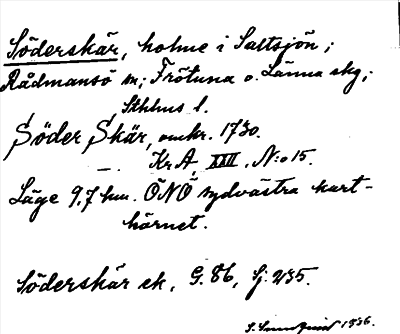 Söderskär, holme i Saltsjön;
Rådmansö sn; Frötuna o. Länna skg;
Sthlms l.
Söder Skär, omkr. 1730.
Kr A, XXII, N:o 15.
Läge 9,7 km. ÖNÖ sydvästra kart-
hörnet.
Söderskär ek, G. 86, Sj. 235.
1936.